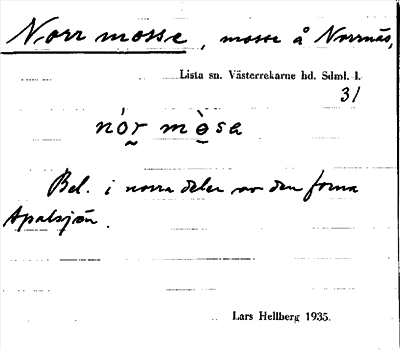 Norrmosse, mosse å Norrnäs,
Lista sn. Västerrekarne hd. Sdml. l.
31
nór mò̤sa
Bel. i norra delen av den forna
Apalsjön.
Lars Hellberg 1935.